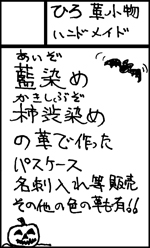 ひろ革小物
ハンドメイド
あいぞ
藍染め
かきしぶぞ
柿渋染め
の革で作った
パスケース
名刺入れ等販売
その他の色の革も有!!